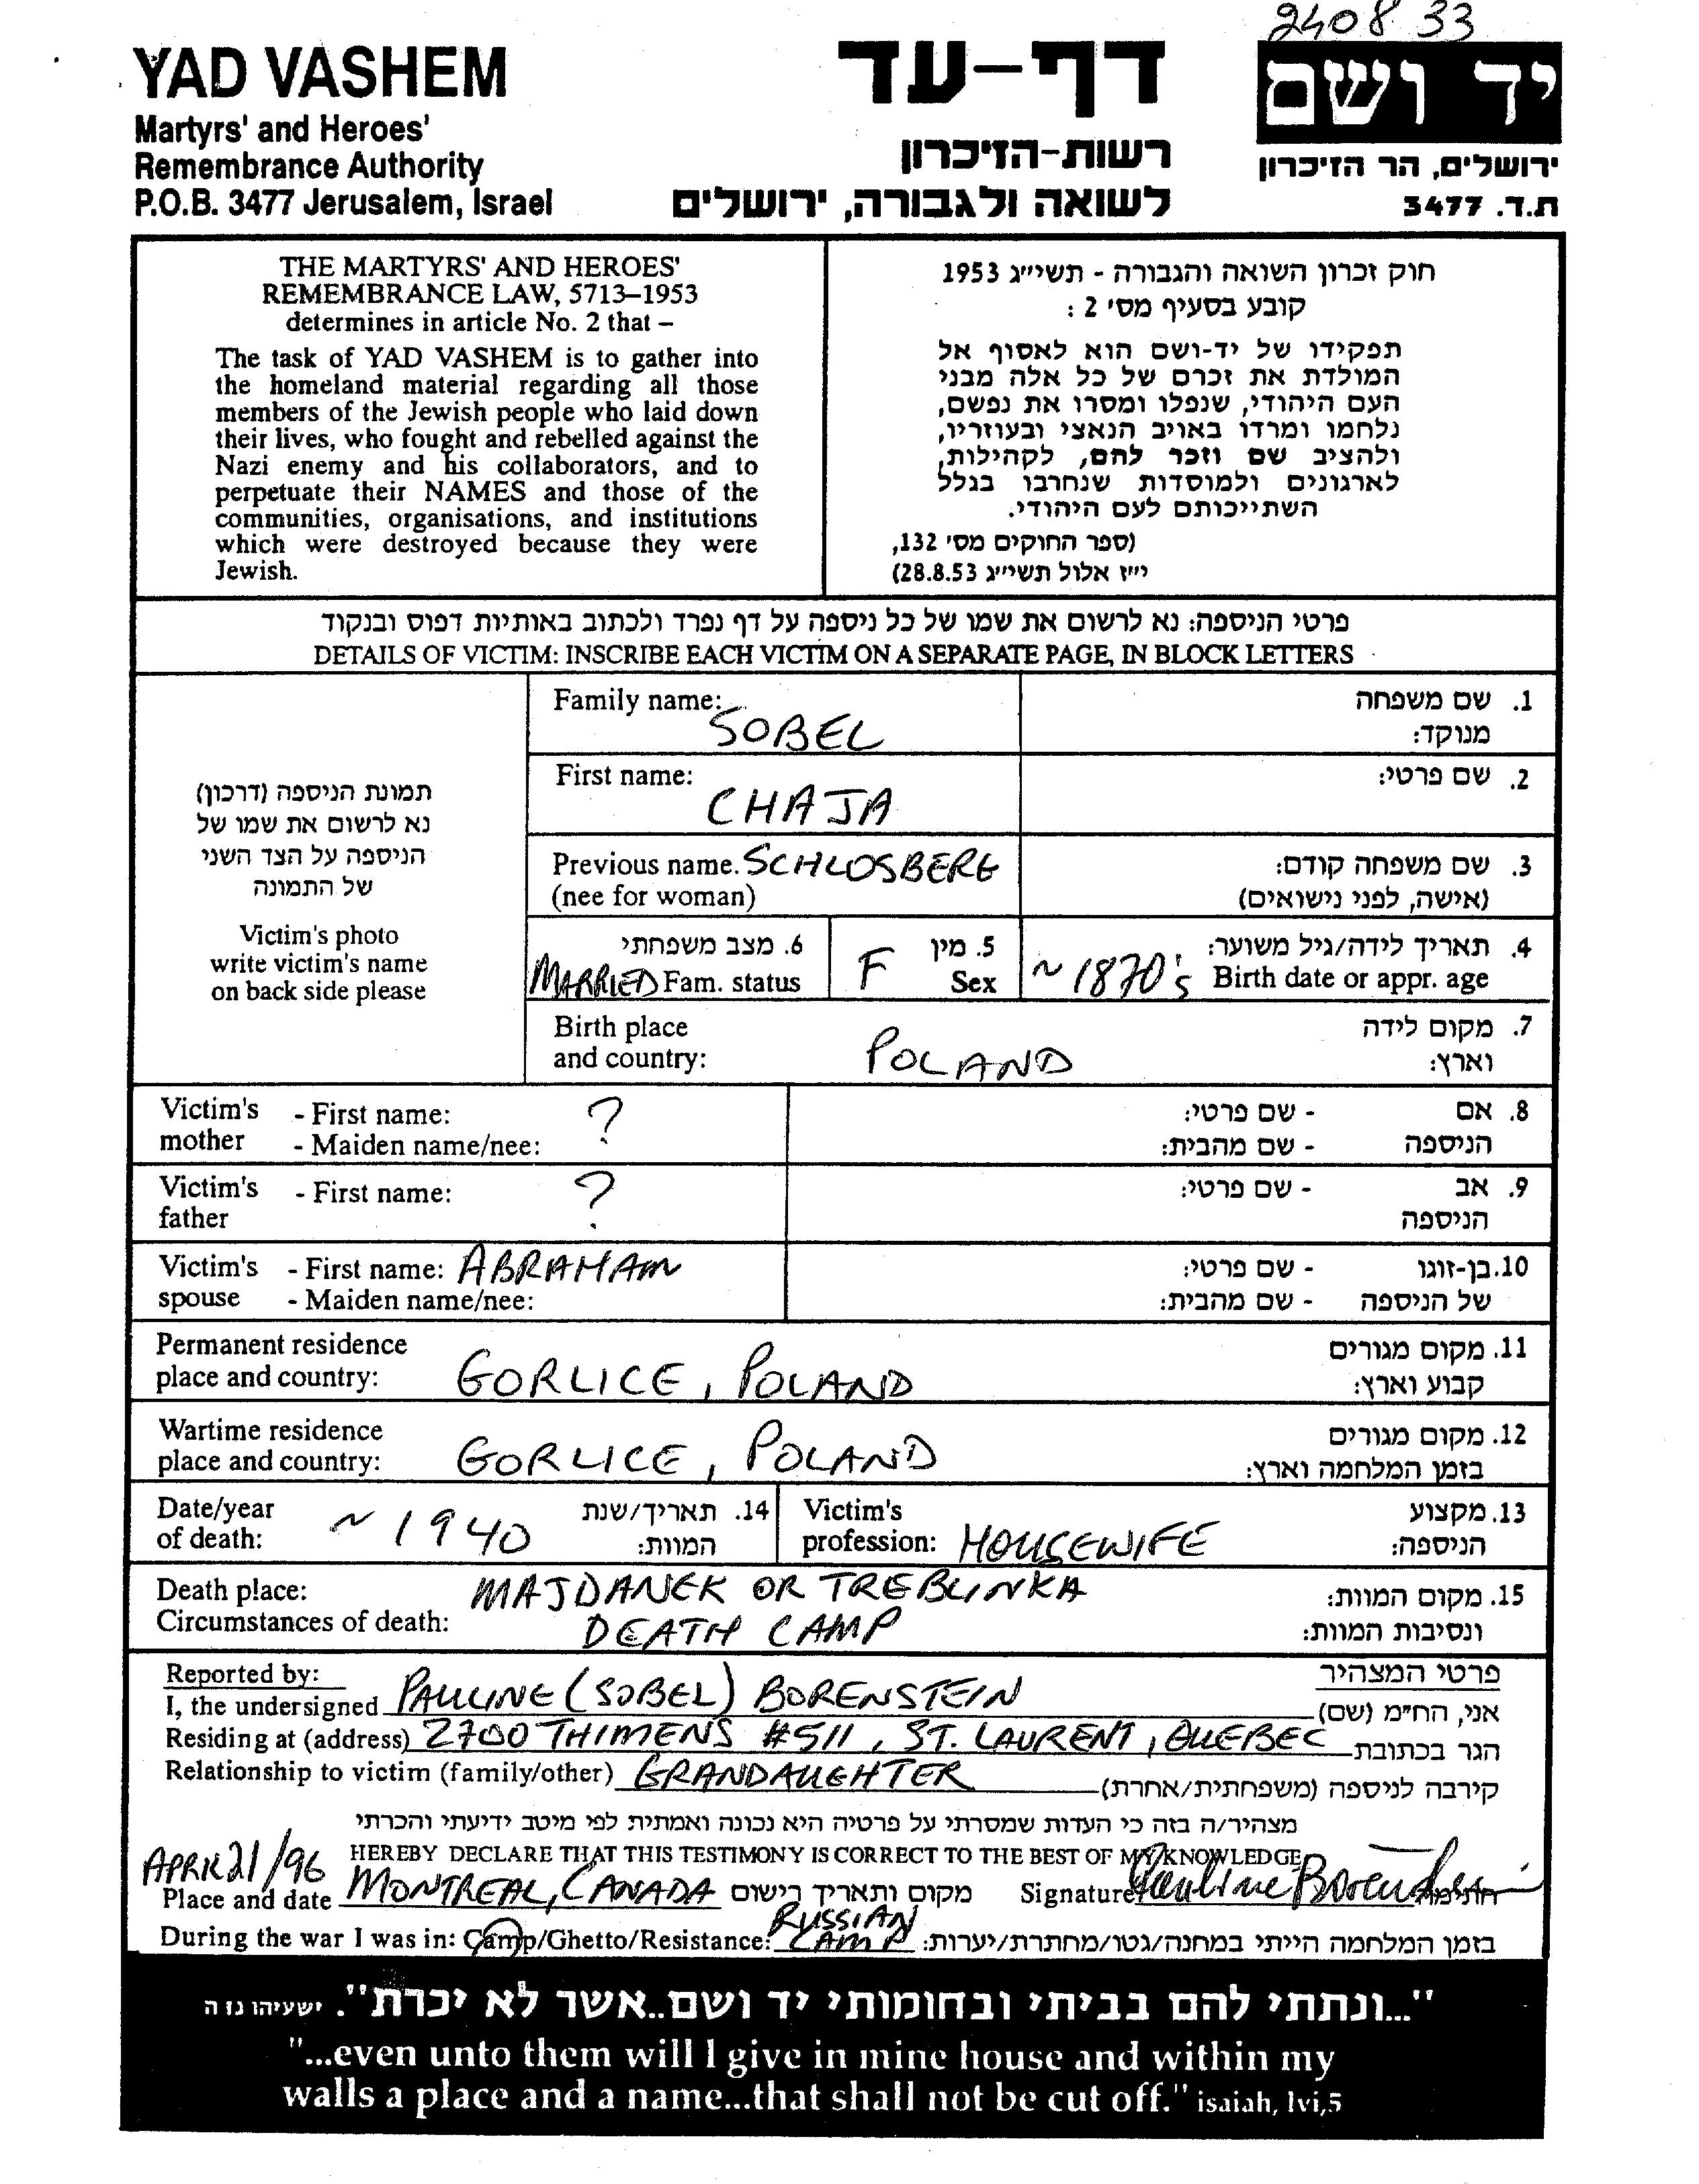 240833
YAD VASHEM
Martyrs' and Heroes'
Remembrance Authority
P.O.B. 3477 Jerusalem, Israel
דף-עד
רשות-הזיכרון
לשואה ולגבורה, ירושלים
יד ושם
ירושלים, הר הזיכרון
ת.ד. 3477
THE MARTYRS' AND HEROES'
REMEMBRANCE LAW, 5713–1953
determines in article No. 2 that –
The task of YAD VASHEM is to gather into
the homeland material regarding all those
members of the Jewish people who laid down
their lives, who fought and rebelled against the
Nazi enemy and his collaborators, and to
perpetuate their NAMES and those of the
communities, organisations, and institutions
which were destroyed because they were
Jewish.
חוק זכרון השואה והגבורה - תשי״ג 1953
קובע בסעיף מס׳ 2 :
תפקידו של יד-ושם הוא לאסוף אל
המולדת את זכרם של כל אלה מבני
העם היהודי, שנפלו ומסרו את נפשם,
נלחמו ומרדו באויב הנאצי ובעוזריו,
ולהציב שם וזכר להם, לקהילות,
לארגונים ולמוסדות שנחרבו בגלל
השתייכותם לעם היהודי.
(ספר החוקים מס׳ 132,
י״ז אלול תשי״ג 28.8.53)
פרטי הניספה: נא לרשום את שמו של כל ניספה על דף נפרד ולכתוב באותיות דפוס ובנקוד
DETAILS OF VICTIM: INSCRIBE EACH VICTIM ON A SEPARATE PAGE, IN BLOCK LETTERS
תמונת הניספה (דרכון)
נא לרשום את שמו של
הניספה על הצד השני
של התמונה
Victim's photo
write victim's name
on back side please
Family name: SOBEL
1. שם משפחה
מנוקד:
First name: CHAJA
2. שם פרטי:
Previous name. SCHLOSBERG
(nee for woman)
3. שם משפחה קודם:
(אישה, לפני נישואים)
6. מצב משפחתי
MARRIED Fam. status
5. מין
F Sex
4. תאריך לידה/גיל משוער:
~ 1870's Birth date or appr. age
Birth place
and country: POLAND
7. מקום לידה
וארץ:
Victim's - First name: ?
mother - Maiden name/nee:
8. אם - שם פרטי:
הניספה - שם מהבית:
Victim's - First name: ?
father
9. אב - שם פרטי:
הניספה
Victim's - First name: ABRAHAM
spouse - Maiden name/nee:
10. בן-זוגו - שם פרטי:
של הניספה - שם מהבית:
Permanent residence
place and country: GORLICE, POLAND
11. מקום מגורים
קבוע וארץ:
Wartime residence
place and country: GORLICE, POLAND
12. מקום מגורים
בזמן המלחמה וארץ:
Date/year
of death: ~ 1940
14. תאריך/שנת
המוות:
Victim's
profession: HOUSEWIFE
13. מקצוע
הניספה:
Death place: MAJDANEK OR TREBLINKA
Circumstances of death: DEATH CAMP
15. מקום המוות:
ונסיבות המוות:
Reported by:
פרטי המצהיר
I, the undersigned PAULINE (SOBEL) BORENSTEIN אני, הח״מ (שם)
Residing at (address) 2700 THIMENS #511, ST. LAURENT, QUEBEC הגר בכתובת
Relationship to victim (family/other) GRANDAUGHTER קירבה לניספה (משפחתית/אחרת)
מצהיר/ה בזה כי העדות שמסרתי על פרטיה היא נכונה ואמתית לפי מיטב ידיעתי והכרתי
HEREBY DECLARE THAT THIS TESTIMONY IS CORRECT TO THE BEST OF MY KNOWLEDGE
APRIL 21/96
Place and date MONTREAL, CANADA מקום ותאריך רישום Signature Pauline Borenstein חתימה
During the war I was in: Camp/Ghetto/Resistance: RUSSIAN CAMP בזמן המלחמה הייתי במחנה/גטו/מחתרת/יערות:
"...ונתתי להם בביתי ובחומותי יד ושם..אשר לא יכרת". ישעיהו נו ה
"...even unto them will I give in mine house and within my
walls a place and a name...that shall not be cut off." isaiah, lvi,5